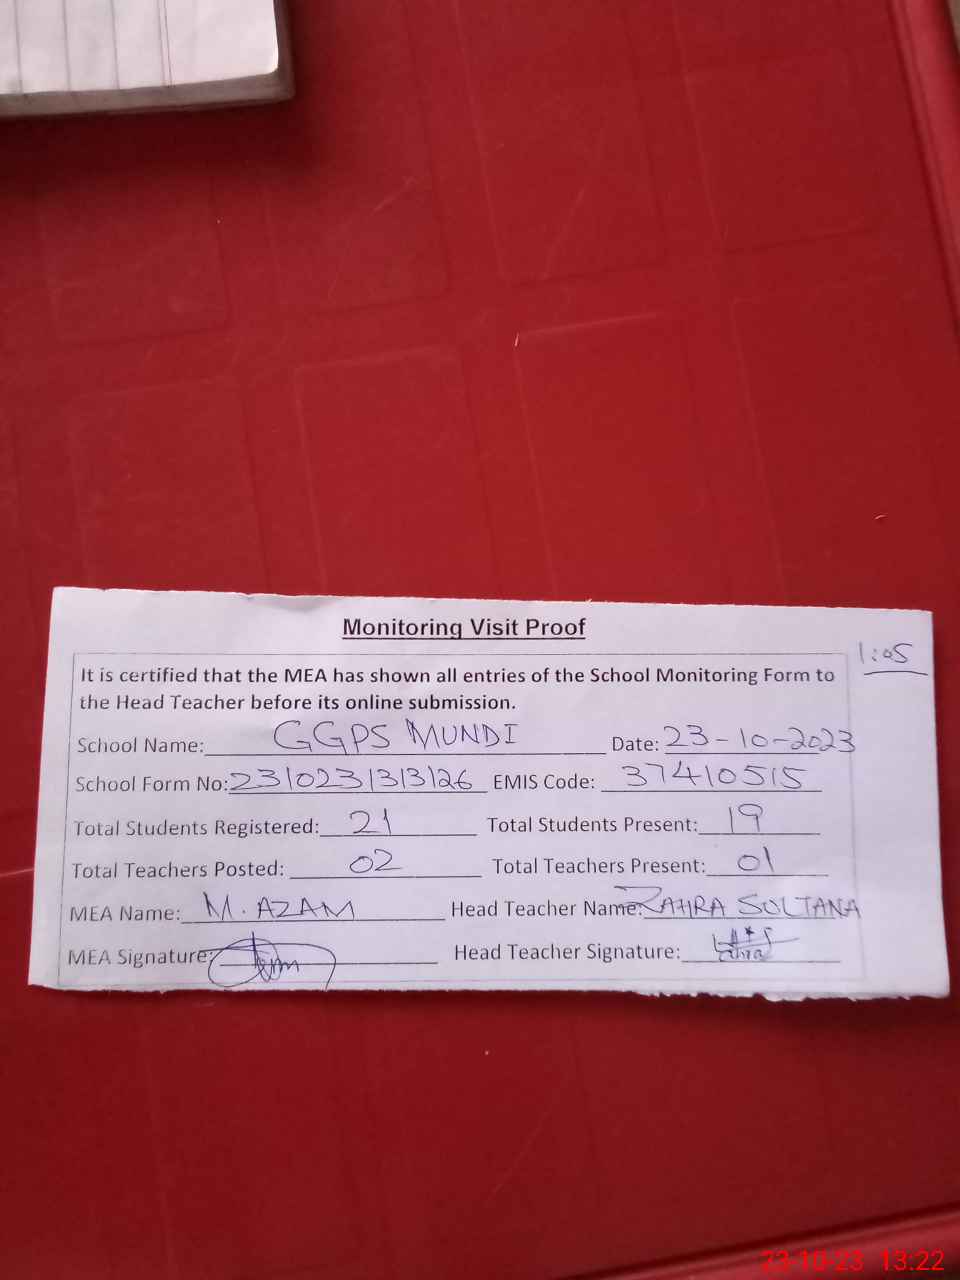 Monitoring Visit Proof
1:05
It is certified that the MEA has shown all entries of the School Monitoring Form to
the Head Teacher before its online submission.
School Name: GGPS MUNDI Date: 23-10-2023
School Form No: 231023131326 EMIS Code: 37410515
Total Students Registered: 21 Total Students Present: 19
Total Teachers Posted: 02 Total Teachers Present: 01
MEA Name: M. AZAM Head Teacher Name: ZAHRA SULTANA
MEA Signature: Head Teacher Signature:
23-10-23 13:22